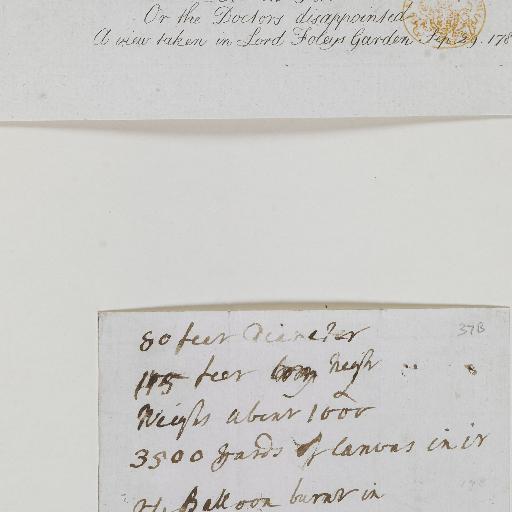 Or the Doctors disappointed
A view taken in Lord Foleys Garden Sep 29. 178
37B
80 feet Diameter
115 feet long heigh
Weighs about 1000
3500 yards of Canvas in it
The Balloon burnt in